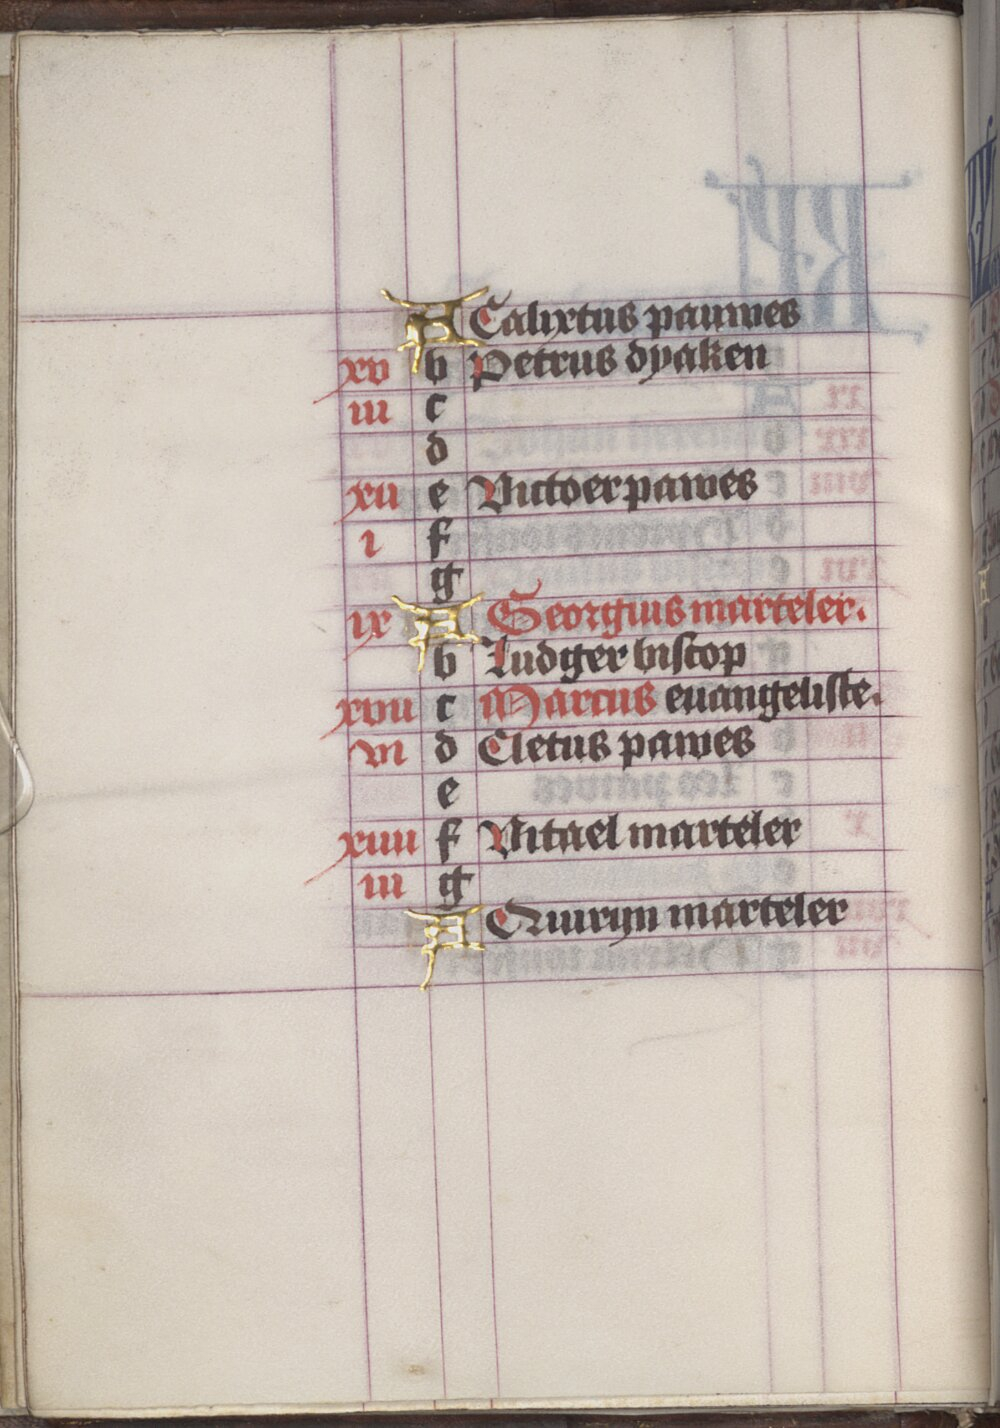 A Calixtus pauwes
xv b Petrus dyaken
iii c
d
xii e Victoer pawes
i f
g
ix A Georgius marteler.
b Ludger biscop
xvii c Marcus euangeliste.
vi d Cletus pawes
e
xiiii f Vitael marteler
iii g
A Quiryn marteler